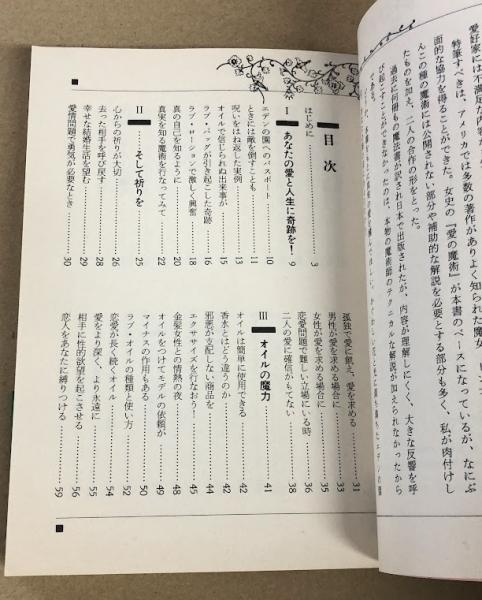 愛好家には不満足な内容
特筆すべきは、アメリカでは多数の著作がありよく知られた魔女
面的な協力を得ることができた。女史の『愛の魔術』が本書のベースになっているが、なにぶ
んこの種の魔術には公開されない部分や補助的な解説を必要とする部分も多く、私が肉付けし
たものを加え、二人の合作の形をとった。
過去に同種の魔法書が訳され日本で出版されたが、内容が理解しにくく、大きな反響を呼
び起こすことができなかったのは、本物の魔術師のテクニカルな解説が加えられなかったから
である。
目次
はじめに……3
Ⅰ あなたの愛と人生に奇跡を!……9
エデンの園へのパスポート……10
ときには敵を倒すことも……11
呪いをはね返した実例……13
オイルで信じられぬ出来事が……15
ラブ・バッグが引き起こした奇跡……16
ラブ・ローションで激しく興奮……18
真の自己を知るように……20
真実を知る魔術を行なってみて……22
Ⅱ ……そして祈りを……25
心からの祈りが大切……26
去った相手を呼び戻す……28
幸せな結婚生活を望む……29
愛情問題で勇気が必要なとき……30
孤独で愛に飢え、愛を求める……31
男性が愛を求める場合に……33
女性が愛を求める場合に……35
恋愛問題で難しい立場にいる時……36
二人の愛に確信がもてない……38
Ⅲ オイルの魔力……41
オイルは簡単に使用できる……42
香水とはどう違うのか……42
邪悪が支配しない商品を……44
エクササイズを行なおう!……45
金髪女性との情熱の夜……48
オイルをつけてモデルの依頼が……49
マイナスの作用もある……50
ラブ・オイルの種類と使い方……52
恋愛が長く続くオイル……54
愛をより深く、より永遠に……55
相手に性的欲望を起こさせる……56
恋人をあなたに縛りつける……59